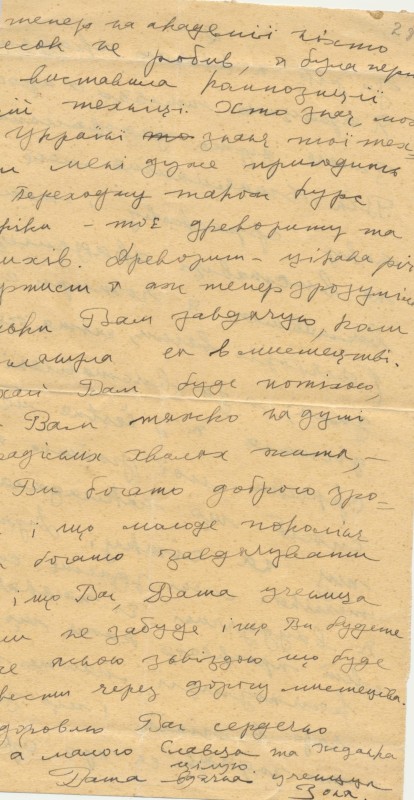 29
тепер на академії ніхто
не робив, я була пер
виставила композиції
ій техніці. Хто знає мо
Україні знає мої тех=
мені дуже пригодить
Переходжу також курс
- тоє древориту та
Древорит - цікава річ
я аж тепер зрозуміла
Вам завдячую, коли
в мистецтві.
хай Вам буде потіхою,
Вам тяжко на душі
хвалях життя, -
Ви богато доброго зро=
і що молоде поколінє
богато завдячувати
і що Вас, Ваша учениця
не забуде і що Ви будете
ясною звіздою що буде
вести через дорогу мистецтва.
доровлю Вас сердечно
а малого Славца та
цілую.
Ваша вдячна учениця
Зоня.